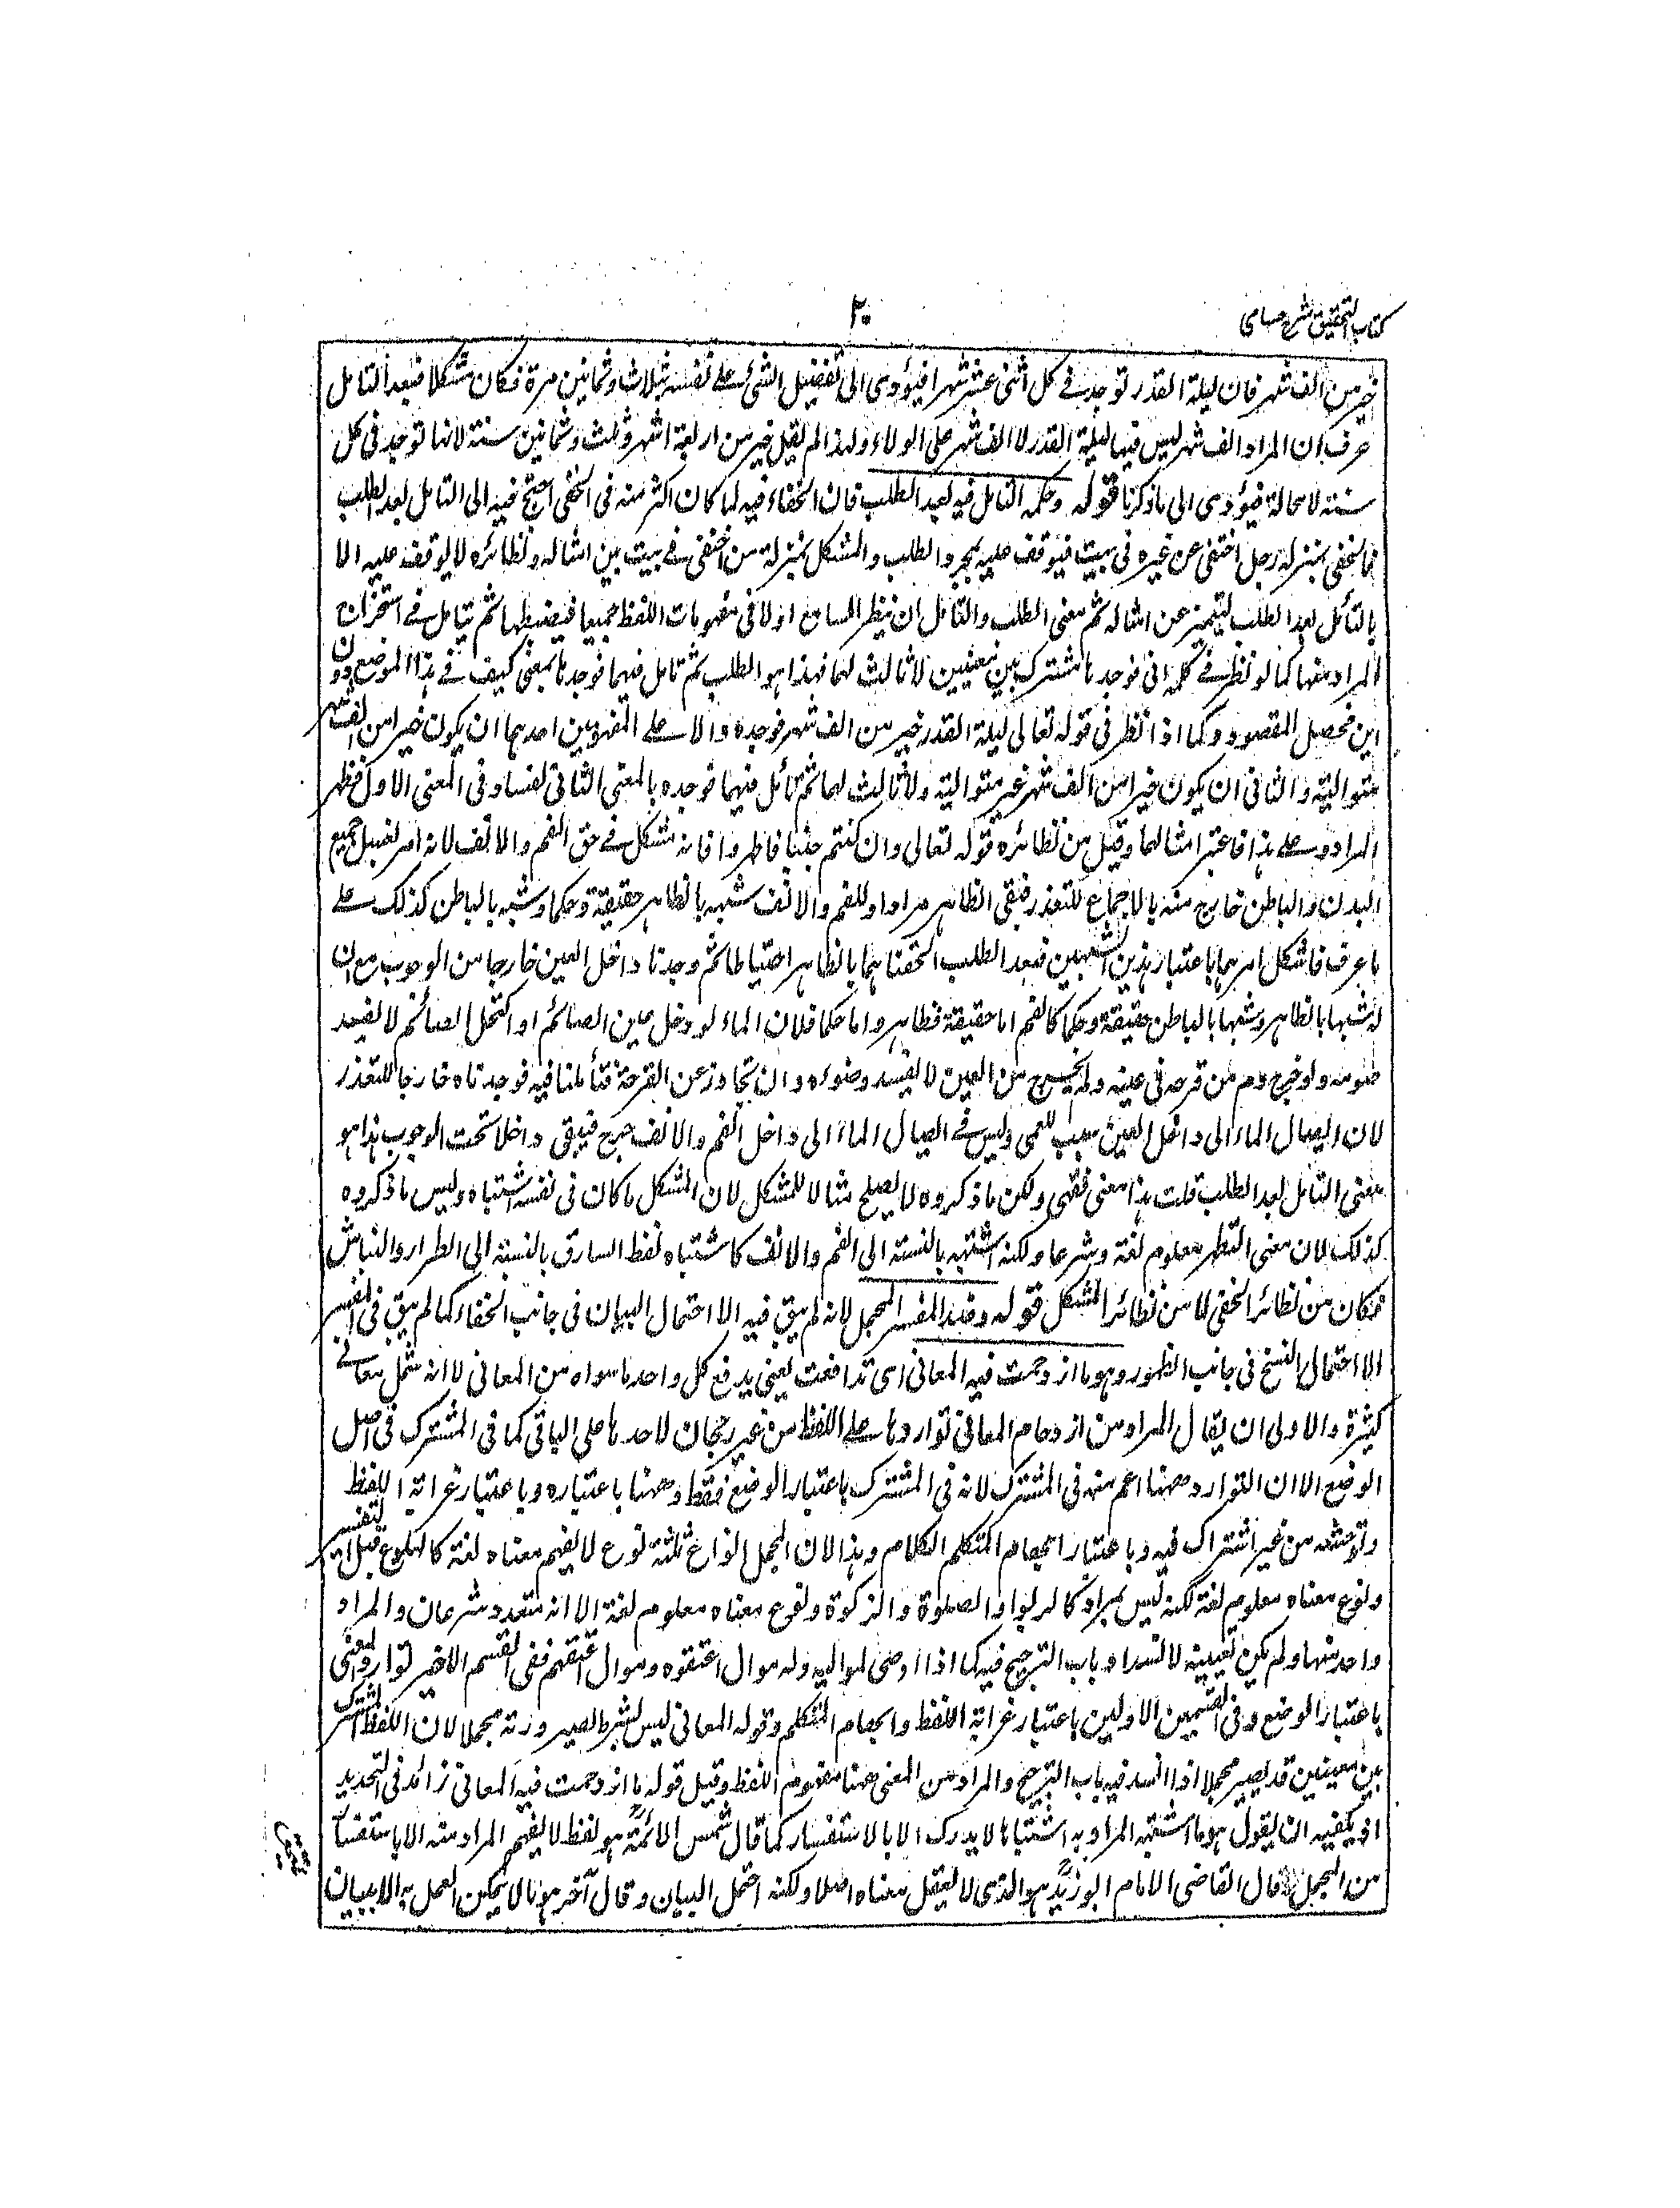 كتاب التحقيق شرح حسامى
٢٠
خير من الف شهر فان ليلة القدر توجد فى كل اثنى عشر شهرا فيؤدى الى تفضيل الشئ على نفسه بثلاث وثمانين مرة فكان مشكلا فبعد التامل
عرف ان المراد الف شهر ليس فيها ليلة القدر لا الف شهر على الولاء ولهذا لم يقل خير من اربعة اشهر وثلث وثمانين سنة لانها توجد فى كل
سنة لا محالة فيؤدى الى ما ذكرنا قوله وحكمه التامل فيه بعد الطلب فان الخفاء فيه لما كان اكثر منه فى الخفى احتج فيه الى التامل بعد الطلب
فالخفى بمنزلة رجل اختفى عن غيره فى بيت فيوقف عليه بمجرد الطلب والمشكل بمنزلة من اختفى فى بيت بين امثاله ونظائره لا يوقف عليه الا
بالتأمل بعد الطلب ليتميز عن امثاله ثم معنى الطلب والتامل ان ينظر السامع اولا فى مفهومات اللفظ جميعا فيضبطها ثم يتامل فى استخراج
المراد منها كما لو نظر فى كلمة انى فوجدها مشتركة بين معنيين لا ثالث لهما فهذا هو الطلب ثم تامل فيهما فوجدها بمعنى كيف فى هذا الموضع دون
اين فحصل المقصود وكما اذا نظر فى قوله تعالى ليلة القدر خير من الف شهر فوجده دالا على المفهومين احدهما ان يكون خيرا من الف شهر
متوالية والثانى ان يكون خيرا من الف شهر غير متوالية ولا ثالث لهما ثم تأمل فيهما فوجده بالمعنى الثانى لفساد فى المعنى الاول فظهر
المراد وعلى هذا فاعتبر امثالهما وقيل من نظائره قوله تعالى وان كنتم جنبا فاطهروا فانه مشكل فى حق الفم والانف لانه امر بغسل جميع
البدن والباطن خارج منه بالاجماع للتعذر فبقى الظاهر مرادا وللفم والانف شبه بالظاهر حقيقة وحكما وشبه بالباطن كذلك على
ما عرف فاشكل امرهما باعتبار هذين الشبهين فبعد الطلب الحقناهما بالظاهر احتياطا ثم وجدنا داخل العين خارجا من الوجوب مع ان
له شبها بالظاهر وشبها بالباطن حقيقة وحكما كالفم اما حقيقة فظاهر واما حكما فلان الماء لو دخل عين الصائم او اكتحل الصائم لا يفسد
صومه ولو خرج دم من قرحه فى عينه ولم يخرج من العين لا يفسد وضوءه وان تجاوز عن القرحة فتأملنا فيه فوجدناه خارجا للتعذر
لان ايصال الماء الى داخل العين سبب للعمى وليس فى ايصال الماء الى داخل الفم والانف حرج فيبقى داخلا تحت الوجوب هذا هو
معنى التامل بعد الطلب قلت هذا معنى فقهى ولكن ما ذكروه لا يصلح مثالا للمشكل لان المشكل ما كان فى نفسه اشتباه وليس ما ذكروه
كذلك لان معنى التطهر معلوم لغة وشرعا ولكنه اشتبه بالنسبة الى الفم والانف كاشتباه لفظ السارق بالنسبة الى الطرار والنباش
فكان من نظائر الخفى لا من نظائر المشكل قوله وضد المفسر المجمل لانه لم يبق فيه الا احتمال البيان فى جانب الخفاء كما لم يبق فى المفسر
الا احتمال النسخ فى جانب الظهور وهو ما ازدحمت فيه المعانى اى تدافعت يعنى يدفع كل واحد ما سواه من المعانى لا انه شمل معانى
كثيرة والاولى ان يقال المراد من ازدحام المعانى تواردها على اللفظ من غير رجحان لاحدها على الباقى كما فى المشترك فى اصل
الوضع الا ان التوارد ههنا اعم منه فى المشترك لانه فى المشترك باعتبار الوضع فقط وههنا باعتباره وباعتبار غرابة اللفظ
وتوحشه من غير اشتراك فيه وباعتبار ابهام المتكلم الكلام وهذا لان المجمل انواع ثلثة نوع لا يفهم معناه لغة كالهلوع قبل التفسير
ونوع معناه معلوم لغة لكنه ليس بمراد كالربوا والصلوة والزكوة ونوع معناه معلوم لغة الا انه متعدد شرعان والمراد
واحد منها ولم يكن تعيينه لانسداد باب الترجيح فيه كما اذا اوصى لمواليه وله موال اعتقوه وموال اعتقهم ففى القسم الاخير توارد المعنى
باعتبار الوضع وفى القسمين الاولين باعتبار غرابة اللفظ وابهام المتكلم وقوله المعانى ليس بشرط لصيرورته مجملا لان اللفظ المشترك
بين معنيين قد يصير مجملا اذا انسد فيه باب الترجيح والمراد من المعنى ههنا مفهوم اللفظ وقيل قوله ما ازدحمت فيه المعانى زائد فى التحديد
اذ يكفيه ان يقول هو ما اشتبه المراد به اشتباها لا يدرك الا بالاستفسار كما قال شمس الائمة هو لفظ لا يفهم المراد منه الا باستفسار
من المجمل وقال القاضى الامام ابو زيد هو الذى لا يعقل معناه اصلا ولكنه احتمل البيان وقال آخر هو ما لا يمكن العمل به الا ببيان